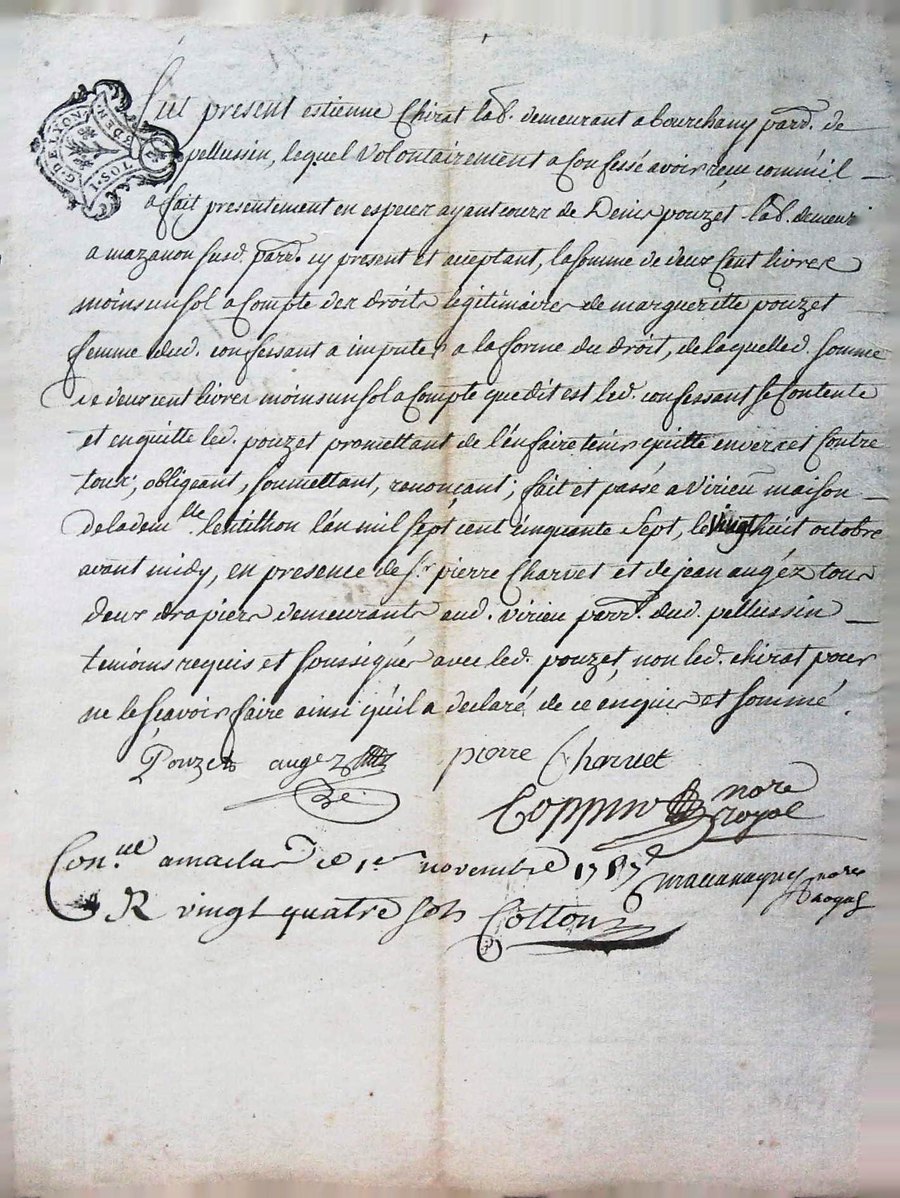 G. DE LYON
DEM. 2 SOLS. 1
Fut present estienne Chirat lab. demeurant a bourchany parr. de
pellussin, lequel volontairement a confessé avoir reçu comme il
a fait presentement en especes ayant cours de Denis pouzet lab. demeur
a mazanon susd. parr. cy present et acceptant, la somme de deux cent livres
moins un sol a Compte des droits legitimaires de margueritte pouzet
femme dud. confessant a imputer a la forme du droit, de laquelled. somme
de deux cent livres moins un sol a Compte que dit est led. confessant se Contente
et en quitte led. pouzet promettant de l'en faire tenir quitte envers et Contre
tous, obligeant, soumettant, renonçant, fait et passé a virieu maison
de la dem.lle lentilhon l'an mil sept cent cinquante sept, le vingthuit octobre
avant midy, en presence de Sr. pierre Charvet et de jean augéz tous
deux drapiers demeurants aud. virieu parr. dud. pellussin
temoins requis et soussignés avec led. pouzet, non led. chirat pour
ne le sçavoir faire ainsi qu'il a declaré de ce enquis et sommé.
Pouzet augez pierre Charvet
Coppin nore
royal
Con.llé a maclas ce 1er novembre 1757
R vingt quatre sols Cotton
nore